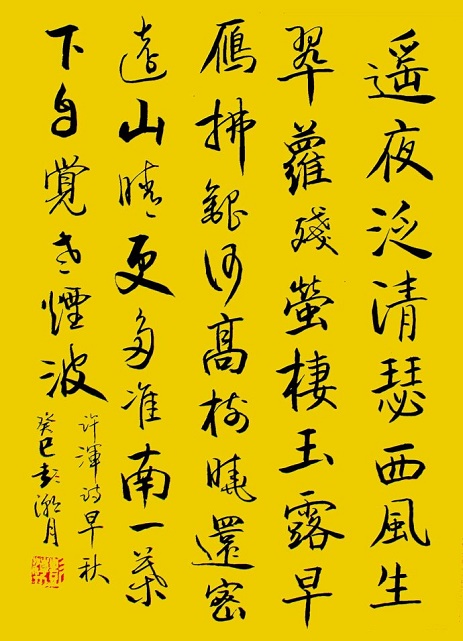 遥夜泛清瑟西風生
翠蘿殘螢棲玉露早
鴈拂銀河高树曉還密
遠山晴更多淮南一葉
下自覺老煙波
许渾诗早秋
癸巳彭月